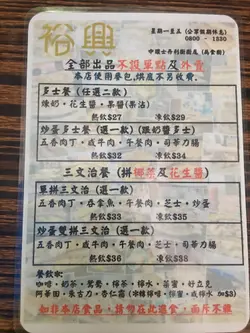 裕興
星期一至五 (公眾假期休息)
0800 - 1530
中環士丹利街街尾 (為食街)
全部出品不設單點及外賣
本店使用麥包,烘底不另收費.
多士餐 (任選二款)
煉奶、花生醬、果醬(果占)
熱飲$27 凍飲$29
炒蛋多士餐 (選一款) (跟奶醬多士)
五香肉丁、或牛肉、午餐肉、司華力腸
熱飲$32 凍飲$34
三文治餐 (拼椰茶及花生醬)
單拼三文治 (選一款)
五香肉丁、吞拿魚、牛肉、芝士、炒蛋
熱飲$33 凍飲$35
炒蛋雙拼三文治 (選一款)
五香肉丁、或牛肉、午餐肉、芝士、司華力腸
熱飲$36 凍飲$38
餐飲:
咖啡、奶茶、鴛鴦、檸茶、檸水、菜蜜、好立克
阿華田、朱古力、杏仁霜
如非本店食品,請勿在此進食,面斥不雅